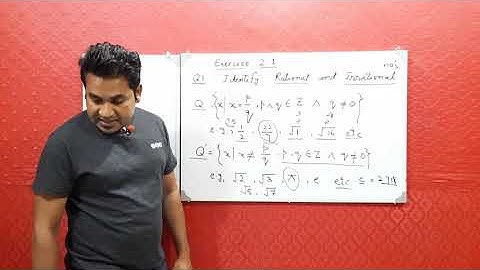 Exercise 2.1
Q1 Identify Rational and Irrational no's
Q = {x | x = p/q , p ∧ q ∈ Z ∧ q ≠ 0}
e.g., 1/2 , 22/7 , √1 , √16 etc
Q' = {x | x ≠ p/q p, q ∈ Z ∧ q ≠ 0}
e.g, √2 , √3 , π , e etc
√5 , √7